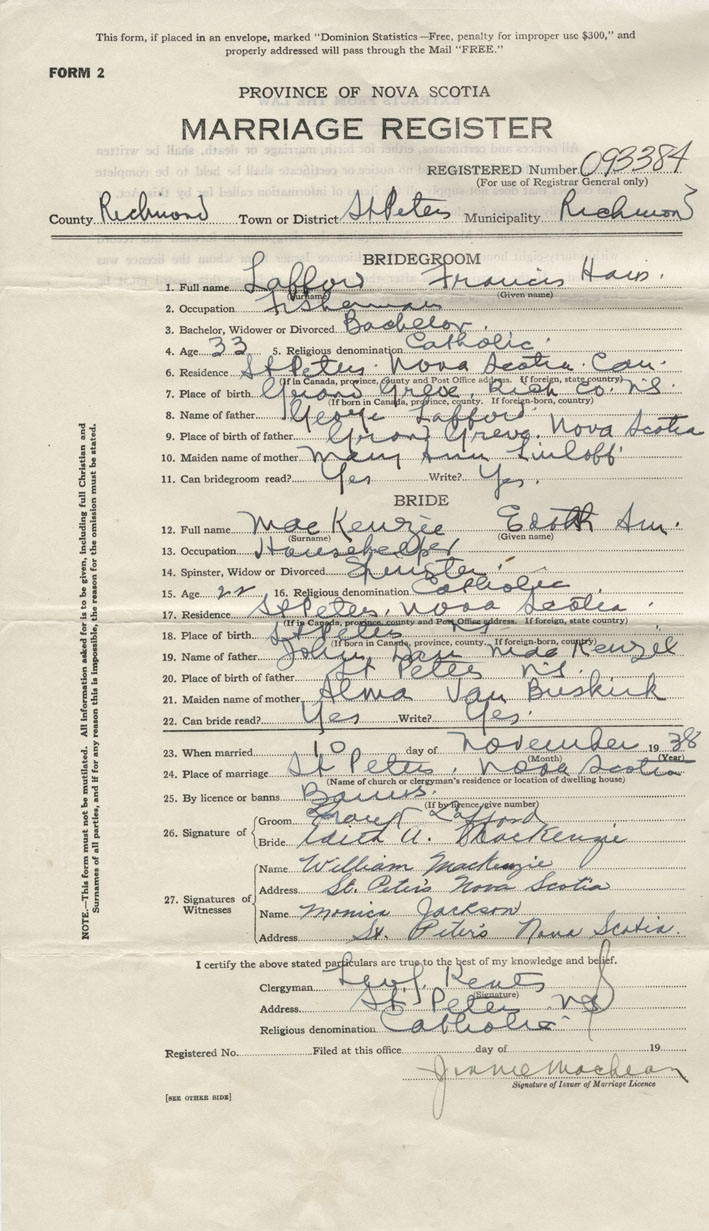 This form, if placed in an envelope, marked "Dominion Statistics—Free, penalty for improper use $300," and
properly addressed will pass through the Mail "FREE."
FORM 2
PROVINCE OF NOVA SCOTIA
MARRIAGE REGISTER
REGISTERED Number 093384
(For use of Registrar General only)
County Richmond Town or District St Peters Municipality Richmond
BRIDEGROOM
1. Full name Lafford Francis
(Surname) (Given name)
2. Occupation Fisherman
3. Bachelor, Widower or Divorced Bachelor.
4. Age 33 5. Religious denomination Catholic.
6. Residence St Peters. Nova Scotia. Can.
(If in Canada, province, county and Post Office address. If foreign, state country)
7. Place of birth Grand Greve. Rich Co. N.S.
(If born in Canada, province, county. If foreign-born, country)
8. Name of father George Lafford
9. Place of birth of father Grand Greve. Nova Scotia
10. Maiden name of mother Mary Ann
11. Can bridegroom read? Yes Write? Yes.
BRIDE
12. Full name MacKenzie Edith An.
(Surname) (Given name)
13. Occupation Househelper
14. Spinster, Widow or Divorced Spinster.
15. Age 22 16. Religious denomination Catholic
17. Residence St Peters. Nova Scotia.
(If in Canada, province, county and Post Office address. If foreign, state country)
18. Place of birth St Peters NS
(If born in Canada, province, county. If foreign-born, country)
19. Name of father John Dan MacKenzie
20. Place of birth of father St Peters N.S.
21. Maiden name of mother Alma Van Buskirk
22. Can bride read? Yes Write? Yes.
23. When married 10 day of November 1938
(Month) (Year)
24. Place of marriage St Peters. Nova Scotia
(Name of church or clergyman's residence or location of dwelling house)
25. By licence or banns Banns.
(If by licence, give number)
26. Signature of
Groom Lafford
Bride Edith A. MacKenzie
27. Signatures of Witnesses
Name William MacKenzie
Address St. Peter's Nova Scotia
Name Monica Jackson
Address St. Peter's Nova Scotia.
I certify the above stated particulars are true to the best of my knowledge and belief.
Clergyman
(Signature)
Address St Peters NS
Religious denomination Catholic
Registered No. Filed at this office day of 19
Jennie MacLean
Signature of Issuer of Marriage Licence
[SEE OTHER SIDE]
NOTE.—This form must not be mutilated. All information asked for is to be given, including full Christian and
Surnames of all parties, and if for any reason this is impossible, the reason for the omission must be stated.